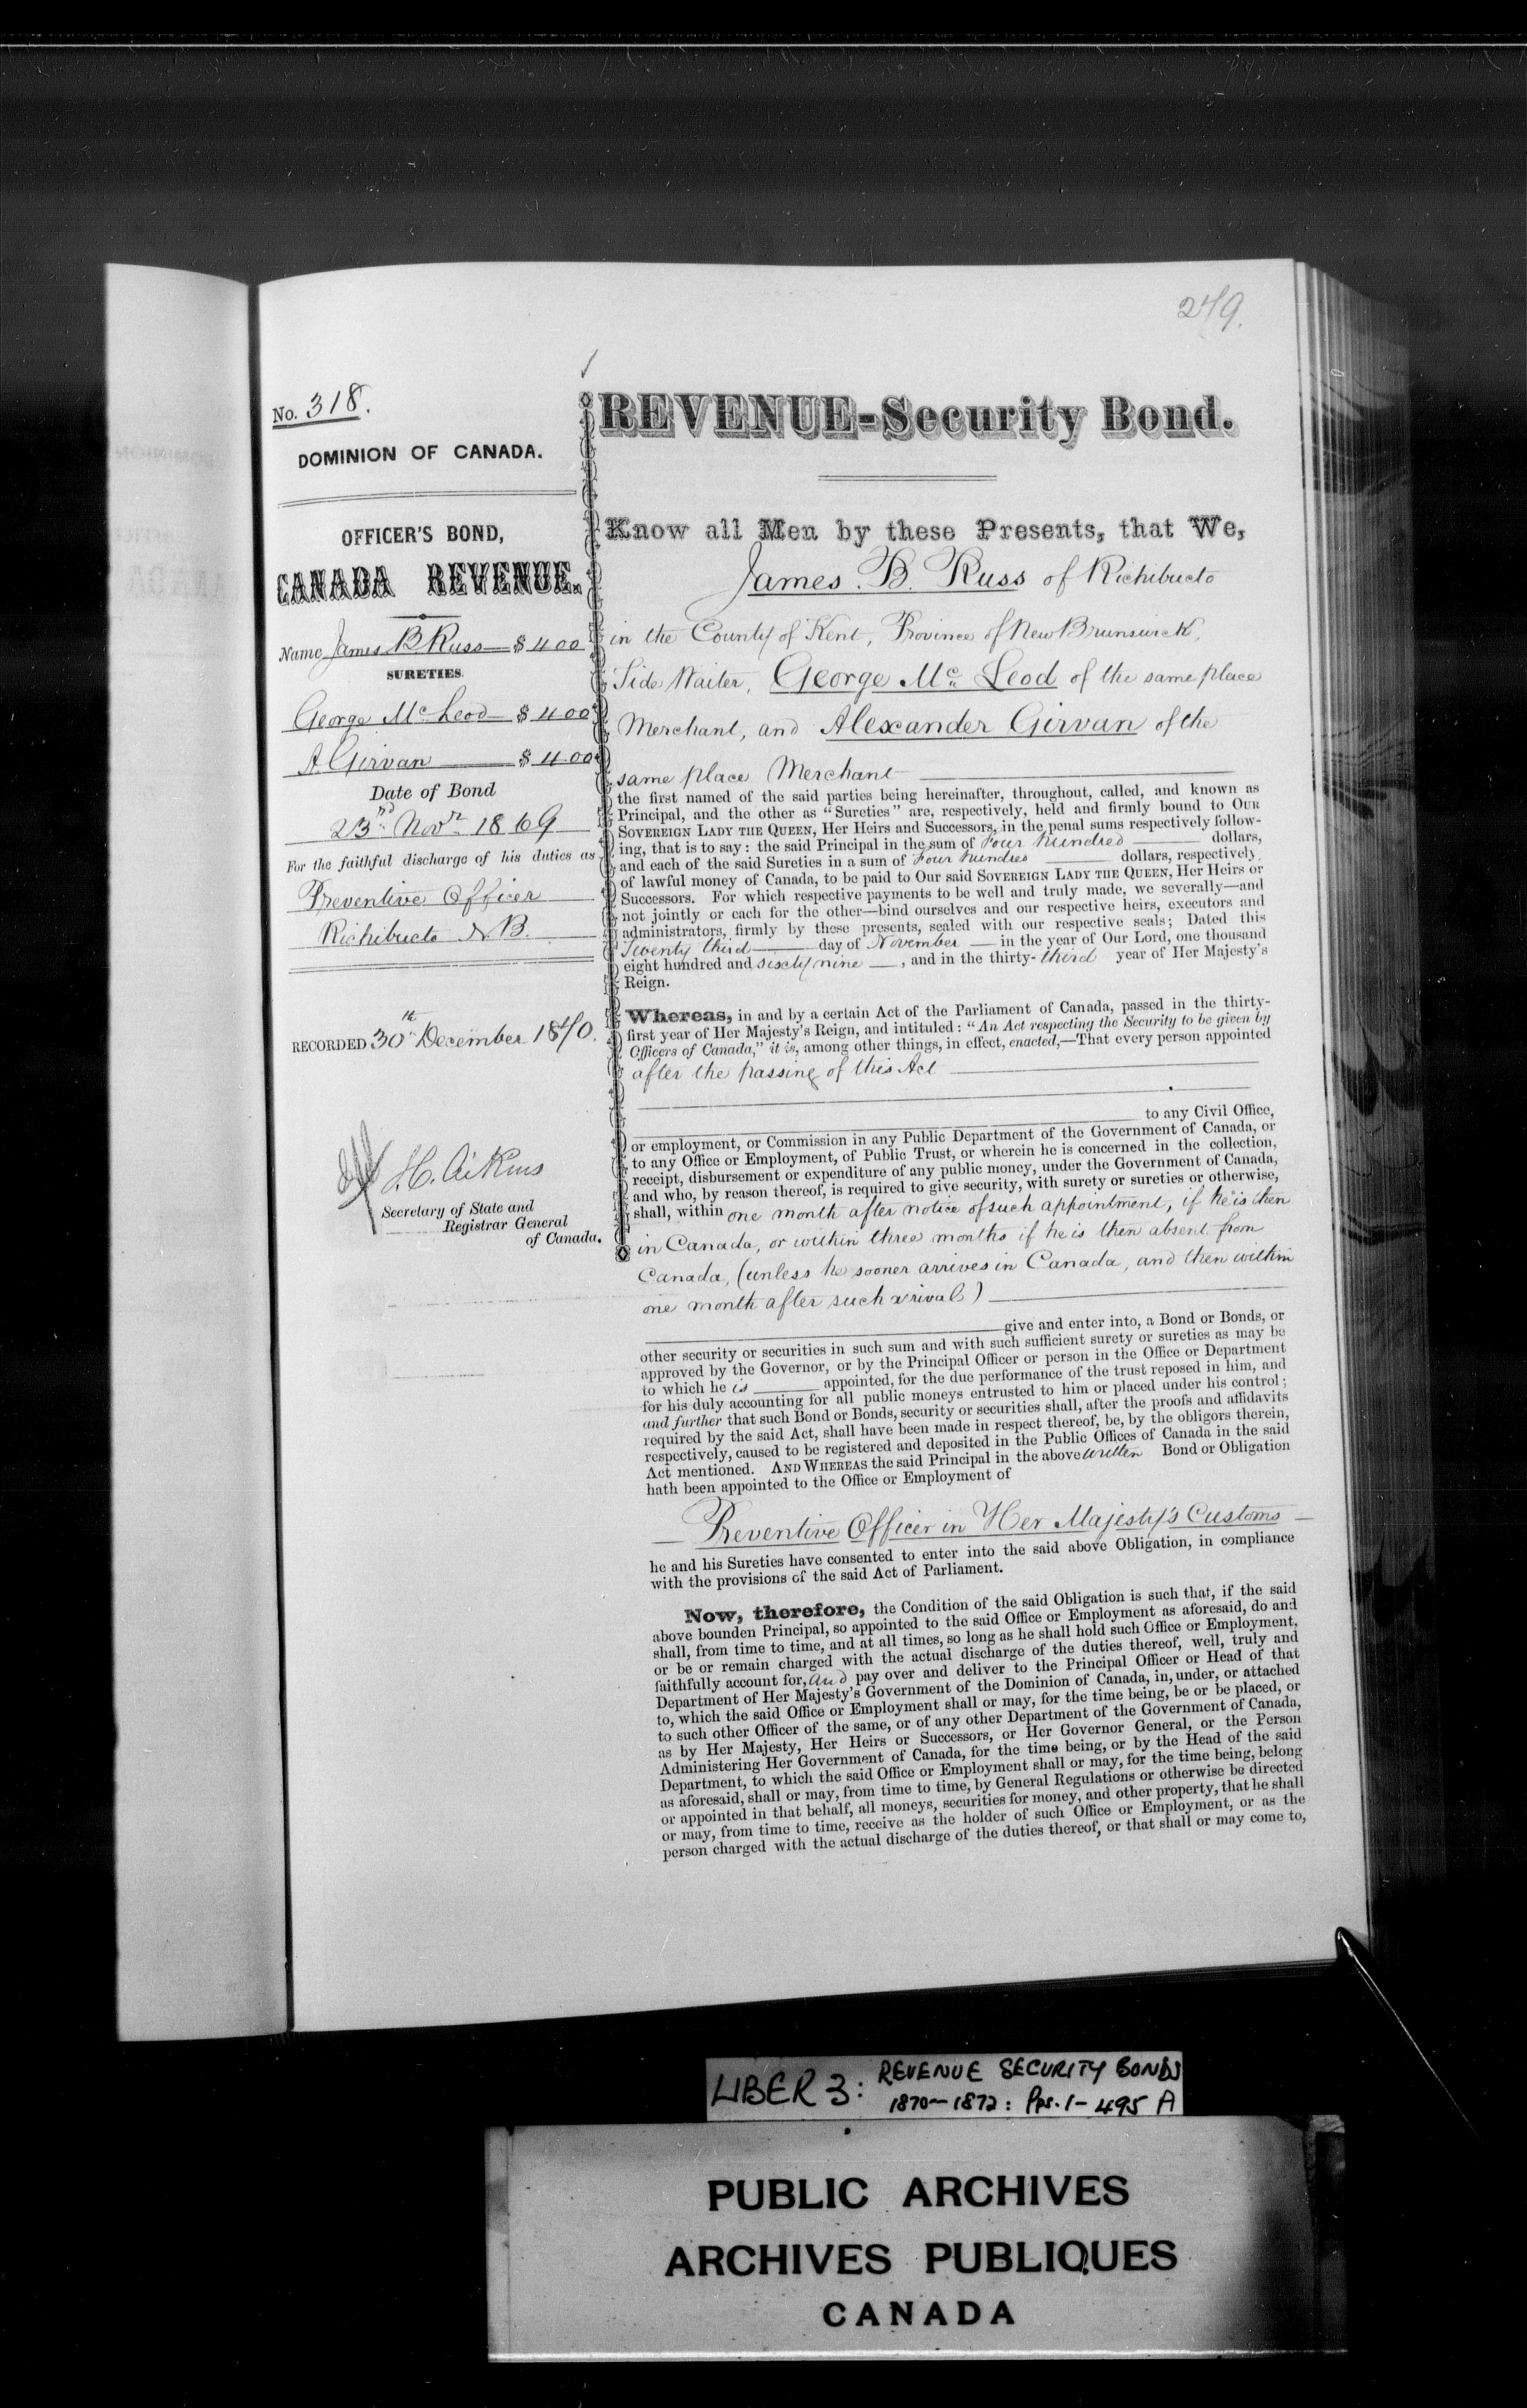 249.
No. 318.
DOMINION OF CANADA.
OFFICER'S BOND,
CANADA REVENUE.
Name James B. Russ $400
SURETIES.
George Mc Leod $400
A. Girvan $400
Date of Bond
23rd Novr 1869
For the faithful discharge of his duties as
Preventive Officer
Richibucto N B.
RECORDED 30th December 1870.
J. C. Aikins
Secretary of State and
Registrar General
of Canada.
REVENUE-Security Bond.
Know all Men by these Presents, that We,
James. B. Russ of Richibucto
in the County of Kent, Province of New Brunswick,
Tide Waiter, George Mc Leod of the same place
Merchant, and Alexander Girvan of the
same place Merchant
the first named of the said parties being hereinafter, throughout, called, and known as
Principal, and the other as "Sureties" are, respectively, held and firmly bound to OUR
SOVEREIGN LADY THE QUEEN, Her Heirs and Successors, in the penal sums respectively follow-
ing, that is to say: the said Principal in the sum of Four hundred dollars,
and each of the said Sureties in a sum of Four hundred dollars, respectively,
of lawful money of Canada, to be paid to Our said SOVEREIGN LADY THE QUEEN, Her Heirs or
Successors. For which respective payments to be well and truly made, we severally—and
not jointly or each for the other—bind ourselves and our respective heirs, executors and
administrators, firmly by these presents, sealed with our respective seals; Dated this
Twenty third day of November in the year of Our Lord, one thousand
eight hundred and sixty nine, and in the thirty-third year of Her Majesty's
Reign.
Whereas, in and by a certain Act of the Parliament of Canada, passed in the thirty-
first year of Her Majesty's Reign, and intituled: "An Act respecting the Security to be given by
Officers of Canada," it is, among other things, in effect, enacted,—That every person appointed
after the passing of this Act
to any Civil Office,
or employment, or Commission in any Public Department of the Government of Canada, or
to any Office or Employment, of Public Trust, or wherein he is concerned in the collection,
receipt, disbursement or expenditure of any public money, under the Government of Canada,
and who, by reason thereof, is required to give security, with surety or sureties or otherwise,
shall, within one month after notice of such appointment, if he is then
in Canada, or within three months if he is then absent from
Canada, (unless he sooner arrives in Canada, and then within
one month after such arrival)
give and enter into, a Bond or Bonds, or
other security or securities in such sum and with such sufficient surety or sureties as may be
approved by the Governor, or by the Principal Officer or person in the Office or Department
to which he is appointed, for the due performance of the trust reposed in him, and
for his duly accounting for all public moneys entrusted to him or placed under his control;
and further that such Bond or Bonds, security or securities shall, after the proofs and affidavits
required by the said Act, shall have been made in respect thereof, be, by the obligors therein,
respectively, caused to be registered and deposited in the Public Offices of Canada in the said
Act mentioned. AND WHEREAS the said Principal in the above written Bond or Obligation
hath been appointed to the Office or Employment of
Preventive Officer in Her Majesty's Customs
he and his Sureties have consented to enter into the said above Obligation, in compliance
with the provisions of the said Act of Parliament.
Now, therefore, the Condition of the said Obligation is such that, if the said
above bounden Principal, so appointed to the said Office or Employment as aforesaid, do and
shall, from time to time, and at all times, so long as he shall hold such Office or Employment,
or be or remain charged with the actual discharge of the duties thereof, well, truly and
faithfully account for, and pay over and deliver to the Principal Officer or Head of that
Department of Her Majesty's Government of the Dominion of Canada, in, under, or attached
to, which the said Office or Employment shall or may, for the time being, be or be placed, or
to such other Officer of the same, or of any other Department of the Government of Canada,
as by Her Majesty, Her Heirs or Successors, or Her Governor General, or the Person
Administering Her Government of Canada, for the time being, or by the Head of the said
Department, to which the said Office or Employment shall or may, for the time being, belong
as aforesaid, shall or may, from time to time, by General Regulations or otherwise be directed
or appointed in that behalf, all moneys, securities for money, and other property, that he shall
or may, from time to time, receive as the holder of such Office or Employment, or as the
person charged with the actual discharge of the duties thereof, or that shall or may come to,
LIBER 3: REVENUE SECURITY BONDS
1870-1872: Pps. 1-495 A
PUBLIC ARCHIVES
ARCHIVES PUBLIQUES
CANADA